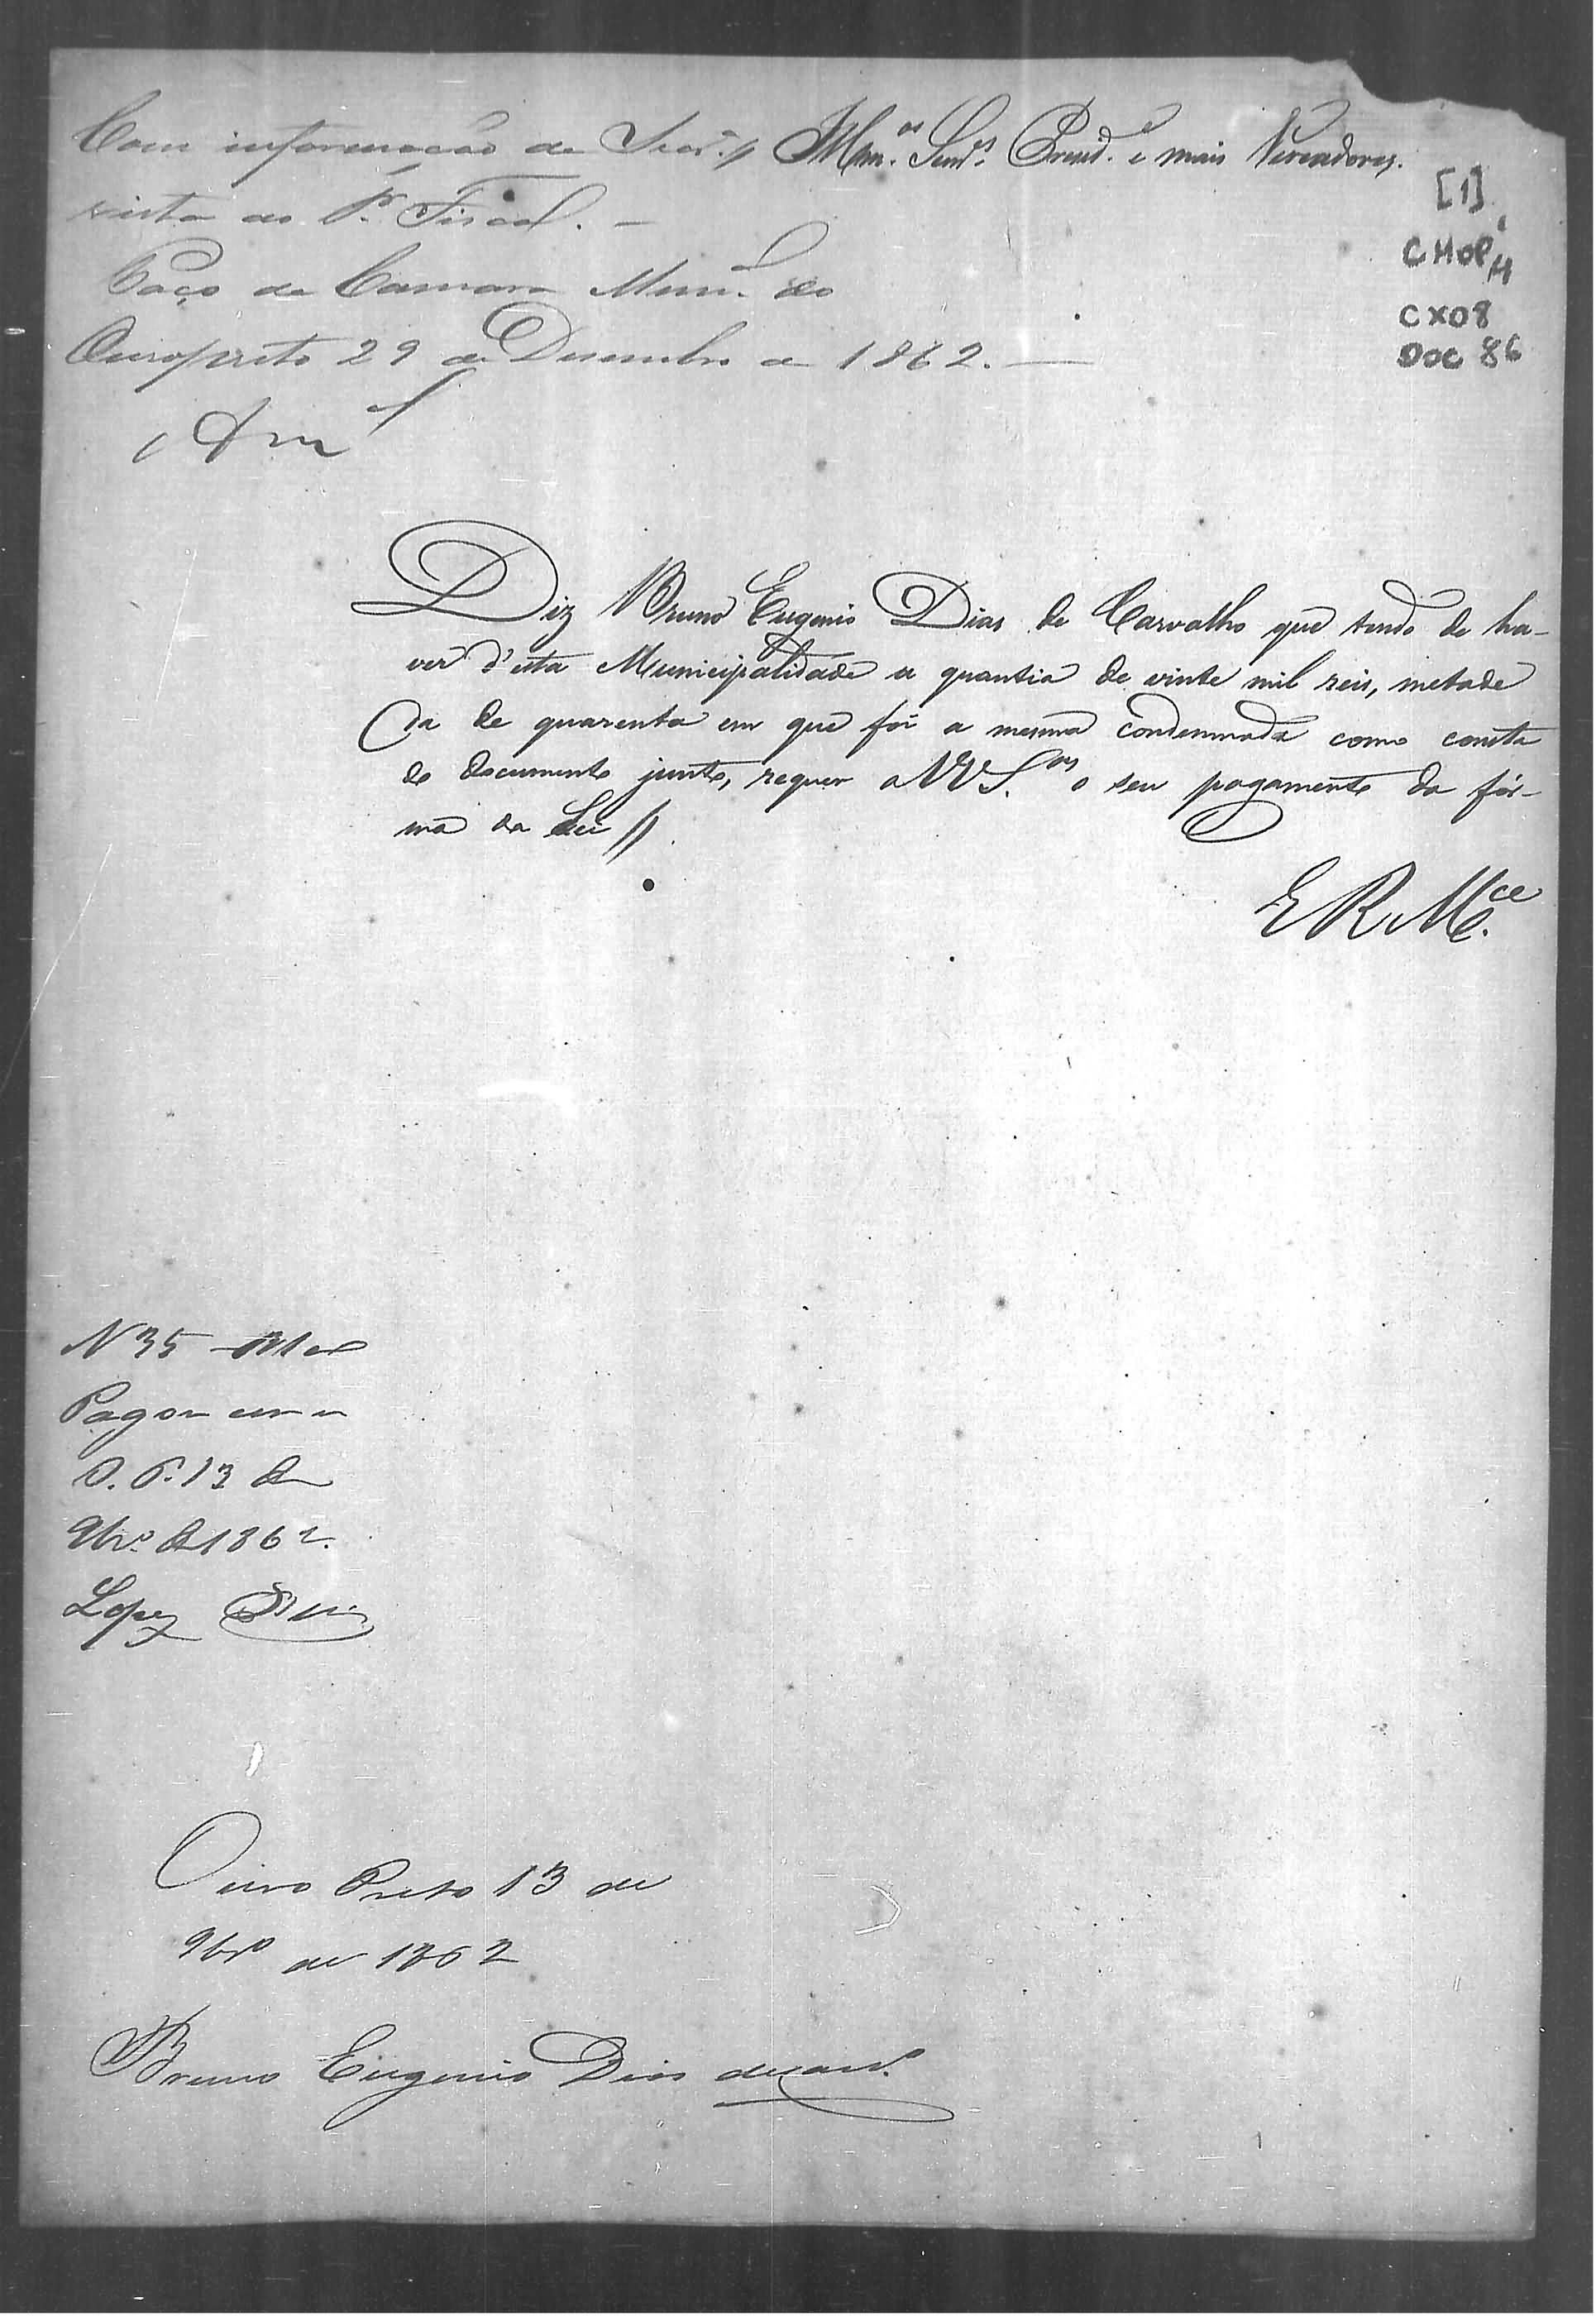 Com informação da Secr.ª
Illm.os Senr.es Presid.e e mais Vereadores.
vista ao P.r Fiscal. —
Paço da Camara Mun.al do
Ouropreto 29 de Desembro de 1862. —
[1]
CMOP
CX08
DOC 86
Diz Bruno Eugenio Dias de Carvalho que tendo de ha-
ver d'esta Municipalidade a quantia de vinte mil reis, metade
da de quarenta em que foi a mesma condemnada como consta
do documento junto, requer a VV S.as o seu pagamento da fór-
ma da Lei //.
E R M.ce
N 35
Pagou
S. P. 13 de
9br.º de 1862.
Lopes
Ouro Preto 13 de
9br.º de 1862
Bruno Eugenio Dias de Carv.º